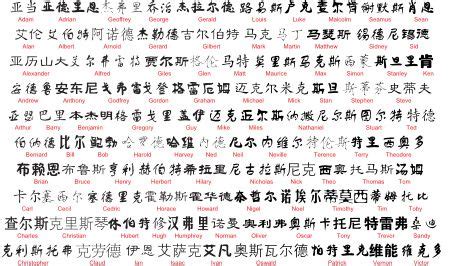 亚当 亚德里恩 杰弗里 乔治 杰拉尔德 路易斯 卢克 麦尔肯 谢默斯 肖恩
Adam Adrian Geoffrey George Gerald Louis Luke Malcolm Seamus Sean
艾伦 艾伯特 阿诺德 杰勒德 吉尔伯特 马克 马丁 马瑟斯 锡德尼 锡德
Alan Albert Arnold Gerard Gilbert Mark Martin Matthew Sidney Sid
亚历山大 艾尔弗雷特 贾尔斯 格伦 马特 莫里斯 马克斯 西蒙 肯
Alexander Alfred Giles Glen Matt Maurice Max Simon Stanley Ken
安德鲁 安东尼 戈弗雷 戈登 格雷厄姆 迈克尔 米克 斯坦 斯蒂芬 史蒂夫
Andrew Anthony Godfrey Gordon Graham Michael Mick Stan Stephen Steve
亚瑟 巴里 本杰明 格雷戈里 盖伊 迈克 迈尔斯 纳撒尼尔 斯图尔特 特德
Arthur Barry Benjamin Gregory Guy Mike Miles Nathaniel Stuart Ted
伯纳德 比尔 鲍勃 哈罗德 哈维 内德 尼尔 内维尔 特伦斯 特里 西奥多
Bernard Bill Bob Harold Harvey Ned Neil Neville Terence Terry Theodore
布赖恩 布鲁斯 亨利 赫伯特 希拉里 尼古拉斯 尼克 西奥 托马斯 汤姆
Brian Bruce Henry Herbert Hilary Nicholas Nick Theo Thomas Tom
卡尔 塞西尔 塞德里克 霍勒斯 霍华德 奈杰尔 诺埃尔 蒂莫西 蒂姆 托比
Carl Cecil Cedric Horace Howard Nigel Noel Timothy Tim Toby
查尔斯 克里斯琴 休伯特 修 汉弗里 诺曼 奥利弗 奥斯卡 托尼 特雷弗 桑迪
Charles Christian Hubert Hugh Humphrey Norman Oliver Oscar Tony Trevor Sandy
克利斯托弗 克劳德 伊恩 艾萨克 艾凡 奥斯瓦尔德 帕特里克 维能 维克多
Christopher Claud Ian Isaac Ivan Oswald Patrick Vernon Victor